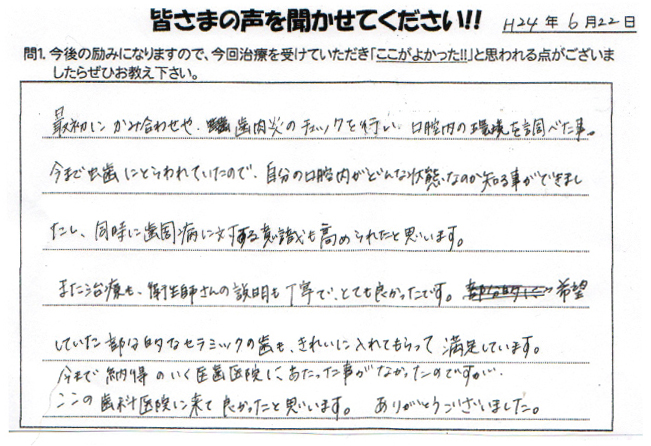 皆さまの声を聞かせてください!! H24年6月22日
問1. 今後の励みになりますので、今回治療を受けていただき「ここがよかった!!」と思われる点がございま
したらぜひお教え下さい。
最初にかみ合わせや、歯肉炎のチェックを行い、口腔内の環境を調べた事。
今まで虫歯にとらわれていたので、自分の口腔内がどんな状態なのか知る事ができまし
たし、同時に歯周病に対する意識も高められたと思います。
また治療も、衛生師さんの説明も丁寧で、とても良かったです。希望
していた部分的なセラミックの歯も、きれいに入れてもらって満足しています。
今まで納得のいく歯医院に、あたった事がなかったのですが、
ここの歯科医院に来て良かったと思います。ありがとうございました。